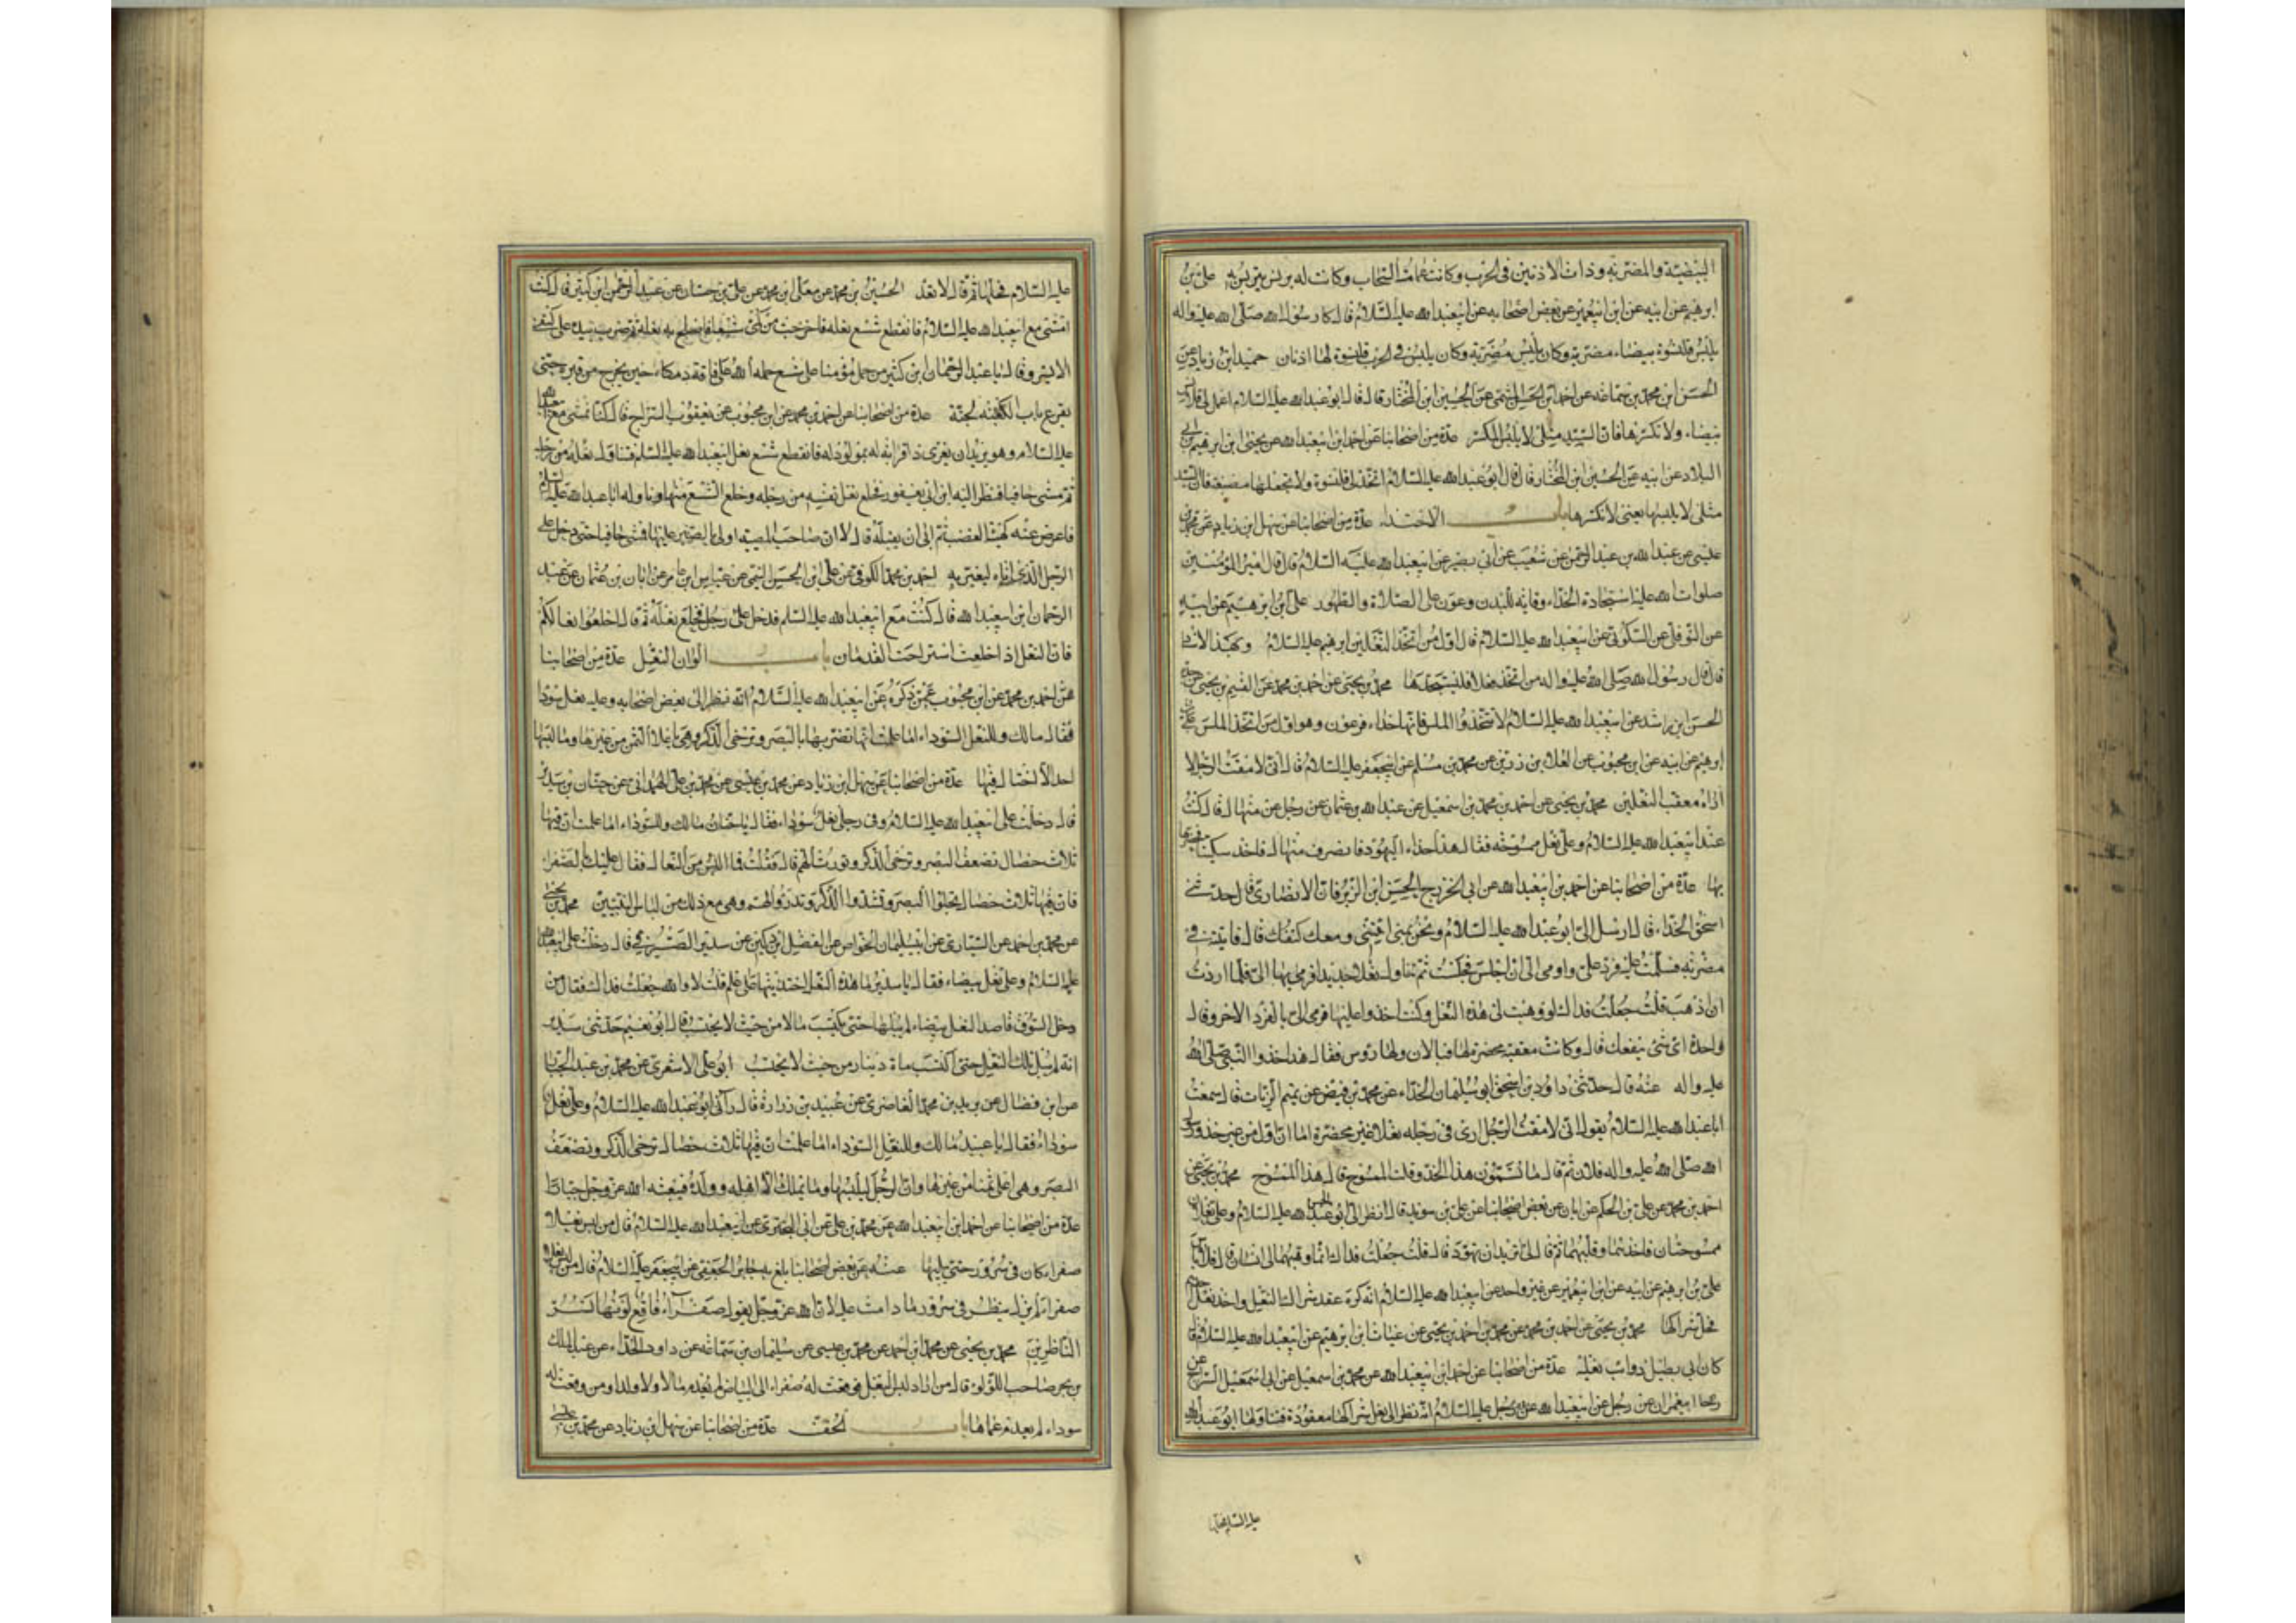 البيضية والمضربة وذات الاذنين في الحرب وكانت عمامته السحاب وكانت له برنس يتبرنس به علي بن
ابرهيم عن ابيه عن ابن ابيعمير عن بعض اصحابه عن ابيعبدا لله عليه السلام قال كان رسول الله صلى الله عليه واله
يلبس قلنسوة بيضاء مضربة وكان يلبس في الحرب قلنسوة لها اذنان حميد ابن زياد عن
الحسن ابن محمد بن سماعة عن احمد ابن الحسن الميثمي عن الحسين ابن المختار قال قال ابو عبدا لله عليه السلام اعمل لي قلانس
بيضاء ولا تكسرها فان السيد مثلي لا يلبس المكسر عدة من اصحابنا عن احمد ابن ابيعبدا لله عن يحيى ابن ابرهيم ابن ابي
البلاد عن ابيه عن الحسين ابن المختار قال قال ابو عبدا لله عليه السلام اتخذ لي قلنسوة ولا تجعلها مصبغة فان السيد
مثلي لا يلبسها يعني لا تكسرها باب الاحتذاء عدة من اصحابنا عن سهل ابن زياد عن محمد بن
عيسى عن عبدا لله بن عبد الرحمن عن شعيب عن ابي بصير عن ابيعبدا لله عليه السلام قال قال امير المؤمنين
صلوات الله عليه استجادة الحذاء وقاية للبدن وعون على الصلاة والطهور علي ابن ابرهيم عن ابيه
عن النوفلي عن السكوني عن ابيعبدا لله عليه السلام قال اول من اتخذ النعلين ابرهيم عليه السلام وبهذا الاسناد
قال قال رسول الله صلى الله عليه واله من اتخذ نعلا فليستجدها محمد بن يحيى عن احمد بن محمد عن القسم بن يحيى عن جده
الحسن ابن راشد عن ابيعبدا لله عليه السلام لا تتخذوا الملس فانها حذاء فرعون وهو اول من اتخذ الملس علي بن
ابرهيم عن ابيه عن ابن محبوب عن العلا بن رزين عن محمد بن مسلم عن ابيجعفر عليه السلام قال اني لامقت الرجل لا
اراه معقب النعلين محمد بن يحيى عن احمد بن محمد بن اسمعيل عن عبدا لله بن عثمان عن رجل عن منهال قال كنت
عند ابيعبدا لله عليه السلام وعلي نعل ممسوحة فقال هذا حذاء اليهود فانصرف منهال فاخذ سكينا فخصرها
بها عدة من اصحابنا عن احمد بن ابيعبدا لله عن ابي الخزرج الحسن ابن الزبرقان الانصاري قال حدثني
اسحق الحذاء قال ارسل الى ابو عبدا لله عليه السلام ونحن بمنى ايتني ومعك كنفك قال فاتيته في
مضربه فسلمت عليه فرد علي واومى الي ان اجلس فجلست ثم تناول نعلا جديدا فرمى بها الي فلما اردت
ان اذهب قلت جعلت فداك لو وهبت لي هذه النعل وكنت احذوا عليها فرمى الي بالفرد الاخر وقال
واحدة اي شيء ينفعك قال وكانت معقبة مخصرة لها قبالان ولها رؤس فقال هذا حذوا النبي صلى الله
عليه واله عنه قال حدثني داود بن اسحق ابو سليمان الحذاء عن محمد بن فيض عن تيم الزيات قال سمعت
ابا عبدا لله عليه السلام يقول اني لامقت الرجل ارى في رجله نعلا غير مخصرة اما ان اول من غير حذو رسول
الله صلى الله عليه واله فلان ثم قال ما تسمون هذا الحذو قلت الممسوح قال هذا الممسوح محمد بن يحيى عن
احمد بن محمد عن علي بن الحكم عن ابان عن بعض اصحابنا عن علي بن سويد قال نظر الي ابو الحسن عليه السلام وعلي نعلان
ممسوحتان فاخذهما وقلبهما ثم قال لي تريد ان تهود قال قلت جعلت فداك انما وهبهما لي انسان قال فلا باس
علي بن ابرهيم عن ابيه عن ابن ابيعمير عن غير واحد عن ابيعبدا لله عليه السلام انه كره عقد شراك النعل واخذ نعل احدهم
فحل شراكها محمد بن يحيى عن احمد بن محمد عن محمد بن احمد بن يحيى عن غياث ابن ابرهيم عن ابيعبدا لله عليه السلام قال
كان ابي يطيل ذوائب نعليه عدة من اصحابنا عن احمد ابن ابيعبدا لله عن محمد بن اسمعيل عن ابي اسمعيل السراج عن
عن رجل عن ابيعبدا لله عليه السلام انه نظر الى نعل شراكها معقودة فتناولها ابو عبدا لله
عليه السلام فحلها
عليه السلام فحلها ثم قال لا تعد الحسين بن محمد عن معلى ابن محمد عن علي بن حسان عن عبد الرحمن ابن كثير قال كنت
امشي مع ابيعبدا لله عليه السلام فانقطع شسع نعله فاخرجت من كمي شسعا فاصلح به نعله ثم ضرب بيده على كتفي
الايسر وقال يا عبد الرحمان ابن كثير من حمل مؤمنا على شسع حمله الله على ناقة دمكاء حين يخرج من قبره حتى
يقرع باب الجنة عدة من اصحابنا عن احمد بن محمد عن ابن محبوب عن يعقوب السراج قال كنا نمشي مع ابيعبدا لله
عليه السلام وهو يريد ان يعزي ذا قرابة له بمولود له فانقطع شسع نعل ابيعبدا لله عليه السلم فتناول نعله من رجله
ثم مشى حافيا فنظر اليه ابن ابي يعفور فخلع نعل نفسه من رجله وخلع الشسع منها وناوله ابا عبدا لله عليه السلام
فاعرض عنه كهيئة المغضب ثم ابى ان يقبله قال لا ان صاحب المصيبة اولى بالصبر عليها فمشى حافيا حتى دخل على
الرجل الذي اتاه ليعزيه احمد بن محمد الكوفي عن علي ابن الحسن التيمي عن عباس ابن عامر عن ابان بن عثمان عن عبد
الرحمان ابن ابيعبدا لله قال كنت مع ابيعبدا لله عليه السلم فدخل على رجل فخلع نعله ثم قال اخلعوا نعالكم
فان النعل اذا خلعت استراحت القدمان باب الوان النعل عدة من اصحابنا
عن احمد بن محمد عن ابن محبوب عمن ذكره عن ابيعبدا لله عليه السلام انه نظر الى بعض اصحابه وعليه نعل سودا
فقال مالك وللنعل السوداء اما علمت انها تضر بالبصر وترخي الذكر وهي باغلا الثمن من غيرها وما لبسها
احد الا اختال فيها عدة من اصحابنا عن سهل ابن زياد عن محمد بن عيسى عن محمد بن علي الهمداني عن حنان بن سدير
قال دخلت على ابيعبدا لله عليه السلام وفي رجلي نعل سوداء فقال يا حنان مالك وللسوداء اما علمت ان فيها
ثلاث خصال تضعف البصر وترخي الذكر وتورث الهم قال فقلت فما البس من النعال فقال عليك بالصفراء
فان فيها ثلاث خصال تجلوا البصر وتشدوا الذكر وتدرؤ الهم وهي مع ذلك من لباس النبيين محمد بن يحيى
عن محمد بن احمد عن السياري عن ابيسليمان الخواص عن الفضل ابن دكين عن سدير الصيرفي قال دخلت على ابيعبدا لله
عليه السلام وعلي نعل بيضاء فقال يا سدير ما هذه النعل احتذيتها على علم قلت لا والله جعلت فداك فقال من
دخل السوق قاصدا لنعل بيضاء لم يبلها حتى يكتسب مالا من حيث لا يحتسب قال ابو نعيم حدثني سدير
انه لم يبل تلك النعل حتى اكتسب مائة دينار من حيث لا يحتسب ابو علي الاشعري عن محمد بن عبد الجبار
عن ابن فضال عن بريد بن محمد الغاضري عن عبيد بن زرارة قال رآني ابو عبدا لله عليه السلام وعلي نعل
سوداء فقال يا عبيد مالك وللنعل السوداء اما علمت ان فيها ثلاث خصال ترخي الذكر وتضعف
البصر وهي اغلى ثمنا من غيرها وان الرجل ليلبسها وما يملك الا اهله وولده فيبعثه الله عز وجل جبارا
عدة من اصحابنا عن احمد ابن ابيعبدا لله عن محمد بن علي عن ابي البختري عن ابيعبدا لله عليه السلام قال من لبس نعلا
صفراء كان في سرور حتى يبليها عنه عن بعض اصحابنا بلغ به جابر الجعفي عن ابيجعفر عليه السلام قال من لبس نعلا
صفراء لم يزل ينظر في سرور ما دامت عليه لان الله عز وجل يقول صفراء فاقع لونها تسر
الناظرين محمد بن يحيى عن محمد ابن احمد عن محمد بن عيسى عن سليمان بن سماعة عن داود الحذاء عن عبد الملك
بن بحر صاحب اللؤلؤ قال من اراد لبس النعل فوقعت له صفراء الى البياض لم يعدم مالا ولا ولدا ومن وقعت له
سوداء لم يعدم غما وهما باب الخف عدة من اصحابنا عن سهل ابن زياد عن محمد بن علي